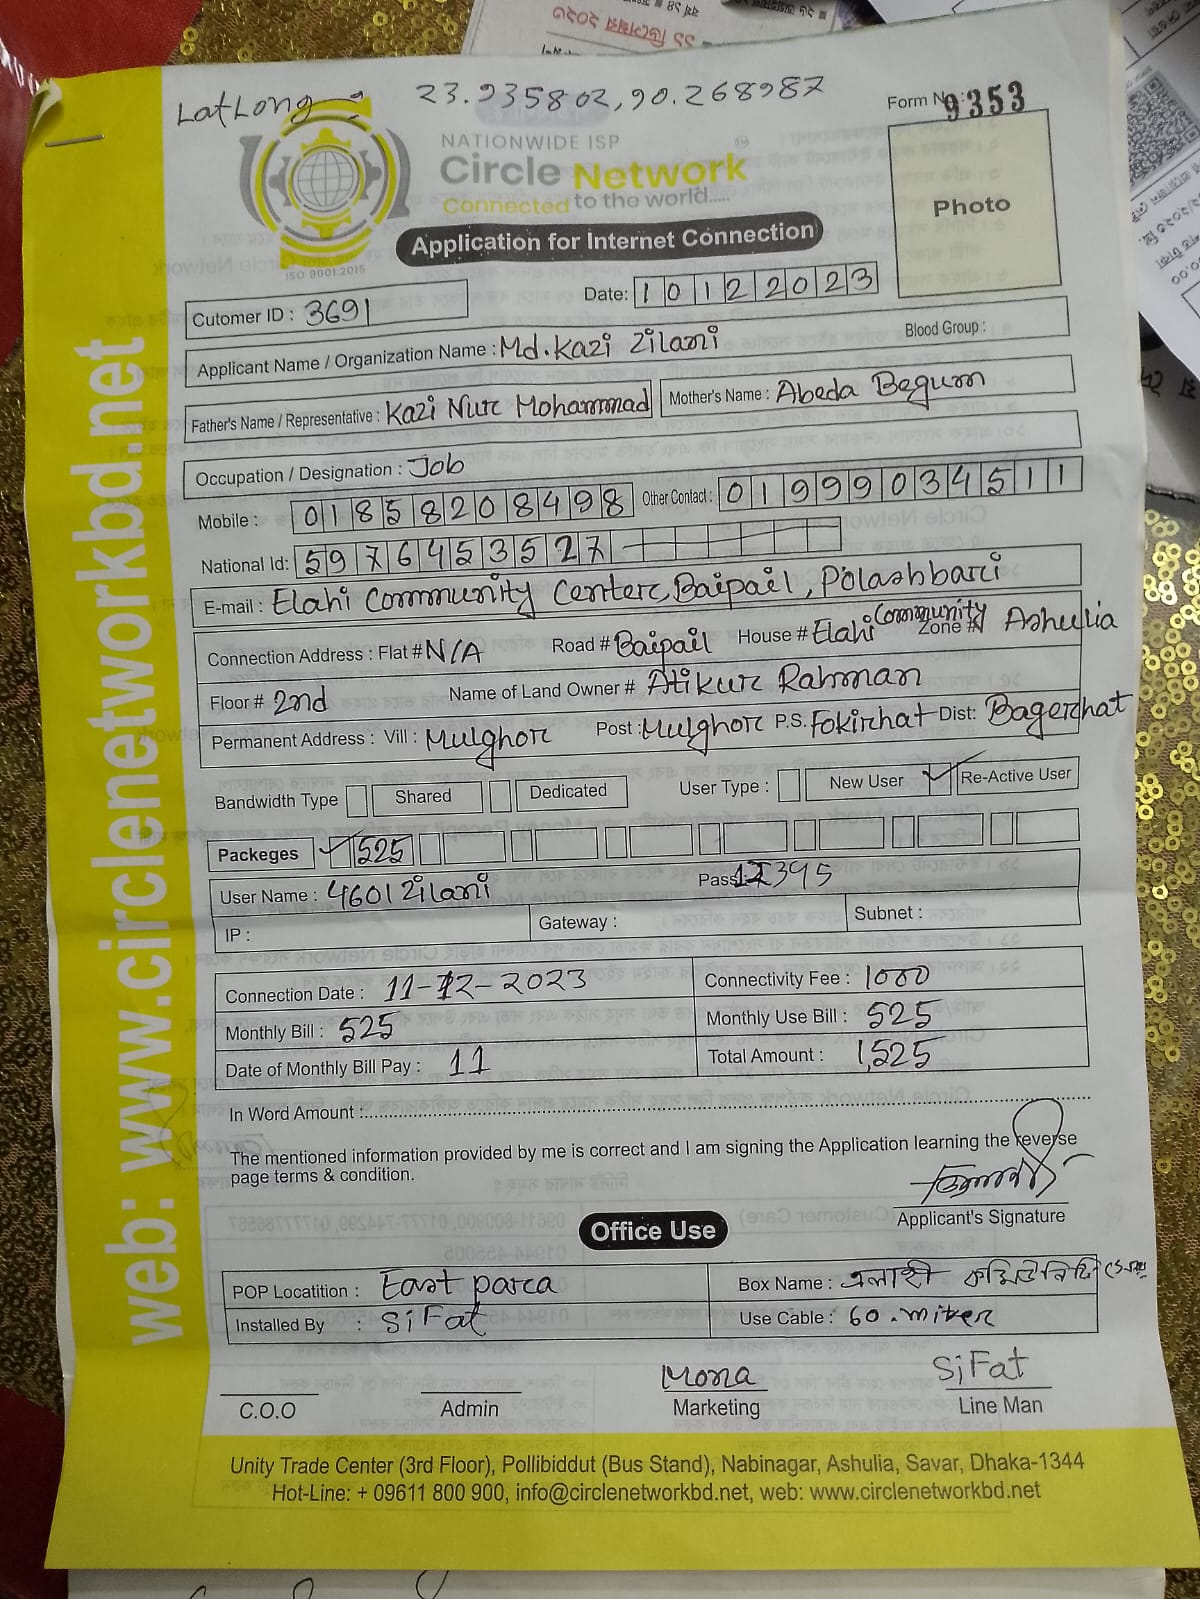 LatLong :- 23.935802,90.268987
Form No: 9353
NATIONWIDE ISP
Circle Network
Connected to the world.....
ISO 9001:2015
Photo
Application for Internet Connection
Date: 10122023
Cutomer ID : 3691
Applicant Name / Organization Name : Md. Kazi Zilani Blood Group :
Father's Name / Representative : Kazi Nur Mohammad Mother's Name : Abeda Begum
Occupation / Designation : Job
Mobile : 01858208498 Other Contact : 01999034511
National Id: 5976453527
E-mail : Elahi Community Center, Baipail, Polashbari
Connection Address : Flat # N/A Road # Baipail House # Elahi Community Zone # Ashulia
Floor # 2nd Name of Land Owner # Atikur Rahman
Permanent Address : Vill : Mulghor Post : Mulghor P.S. Fokirhat Dist: Bagerhat
Bandwidth Type Shared Dedicated User Type : New User Re-Active User
Packeges 525
User Name : 4601Zilani Pass 12395
IP : Gateway : Subnet :
Connection Date : 11-12-2023 Connectivity Fee : 1000
Monthly Bill : 525 Monthly Use Bill : 525
Date of Monthly Bill Pay : 11 Total Amount : 1,525
In Word Amount :
The mentioned information provided by me is correct and I am signing the Application learning the reverse
page terms & condition.
Applicant's Signature
Office Use
POP Locatition : East para Box Name : এলাহী কমিউনিটি
Installed By : SiFat Use Cable : 60. miter
Mona SiFat
C.O.O Admin Marketing Line Man
Unity Trade Center (3rd Floor), Pollibiddut (Bus Stand), Nabinagar, Ashulia, Savar, Dhaka-1344
Hot-Line: + 09611 800 900, info@circlenetworkbd.net, web: www.circlenetworkbd.net
web: www.circlenetworkbd.net